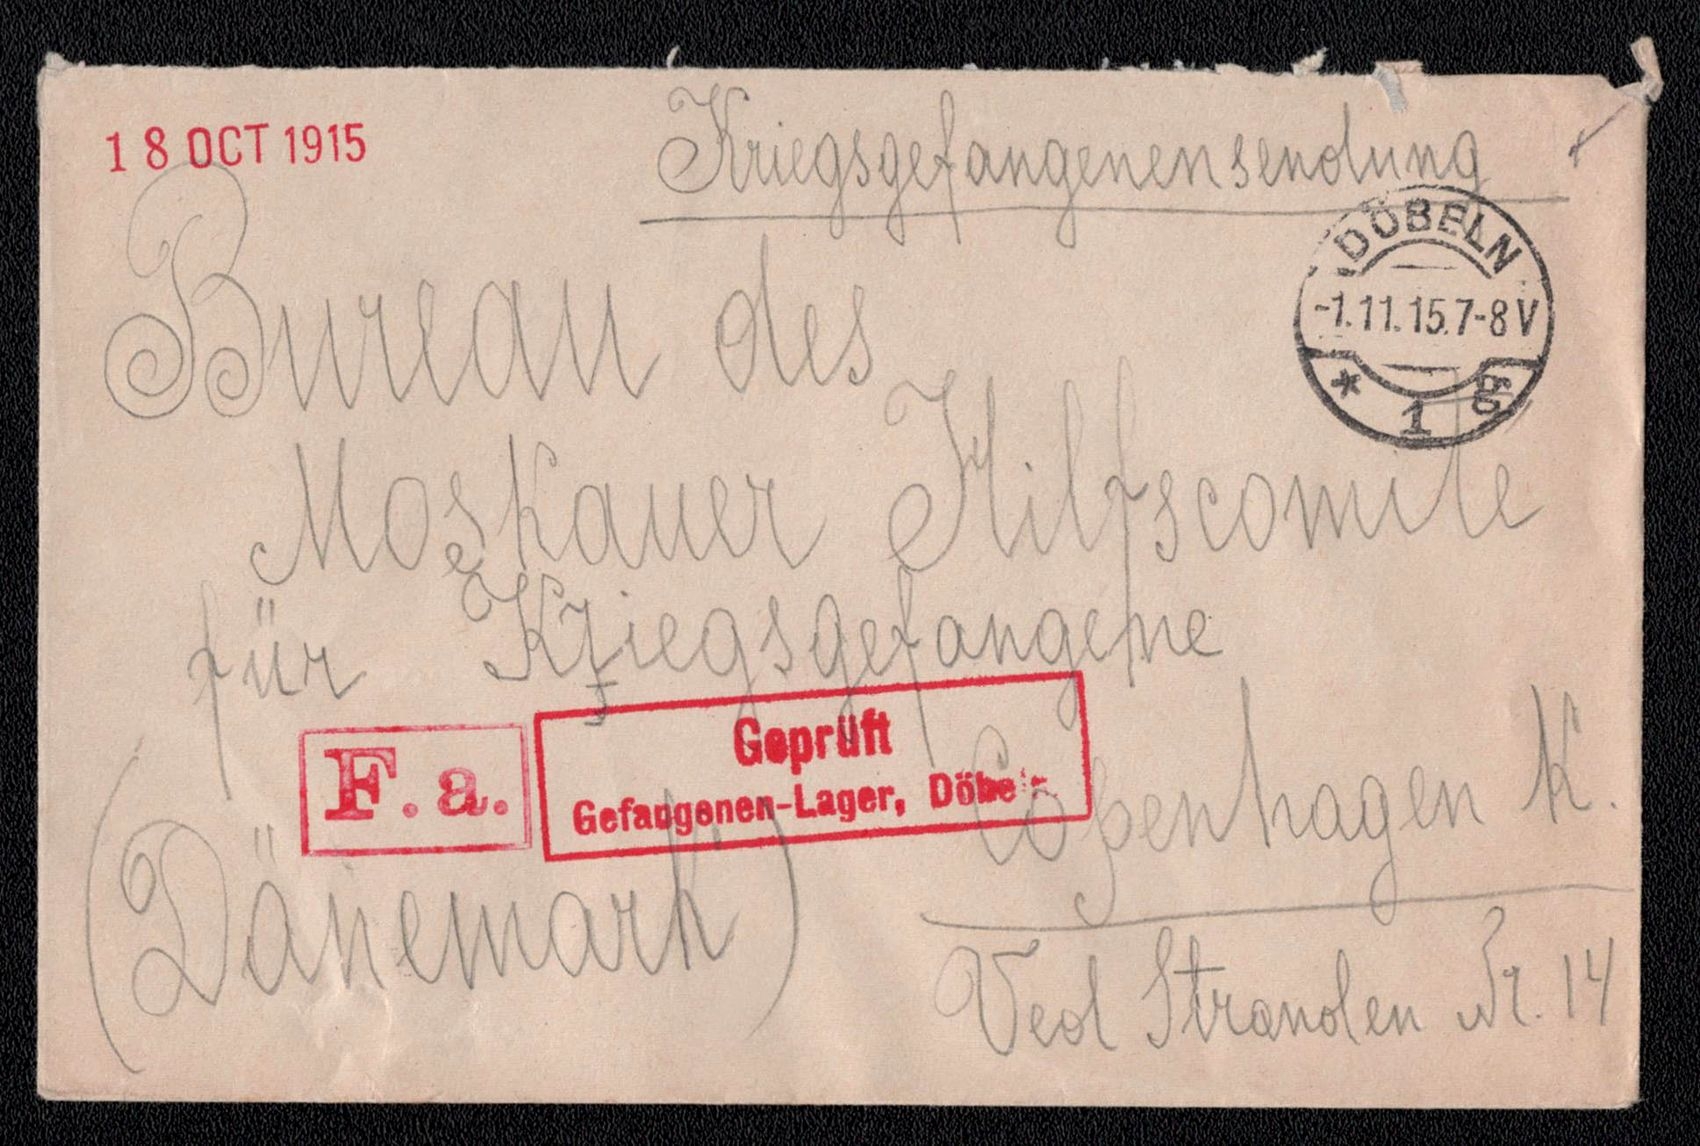 18 OCT 1915
Kriegsgefangenensendung
DÖBELN
-1.11.15.7-8V
* 1 g
Bureau des
Moskauer Hilfscomite
für Kriegsgefangene
F. a.
Geprüft
Gefangenen-Lager,
Copenhagen K.
(Dänemark)
Ved Stranden Nr. 14